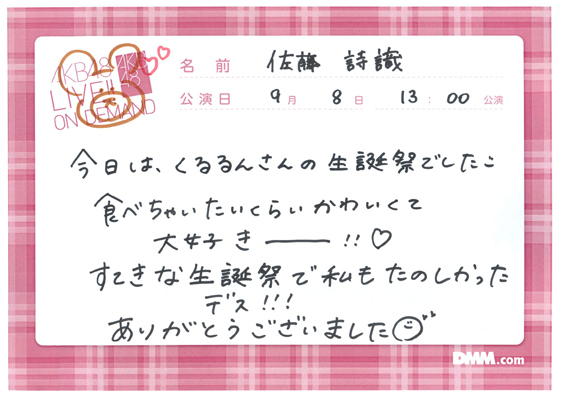 AKB48
LIVE!!
ON DEMAND
AKB
48
名 前 佐藤 詩識
公演日 9月 8日 13:00 公演
今日は、くるるんさんの生誕祭でしたこ
食べちゃいたいくらいかわいくて
大好きー!!♡
すてきな生誕祭で私もたのしかった
デス!!!
ありがとうございました☺
DMM.com